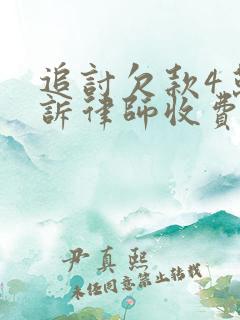 追討欠款4
訴律師收費
尹真熙
未经同意禁止转载